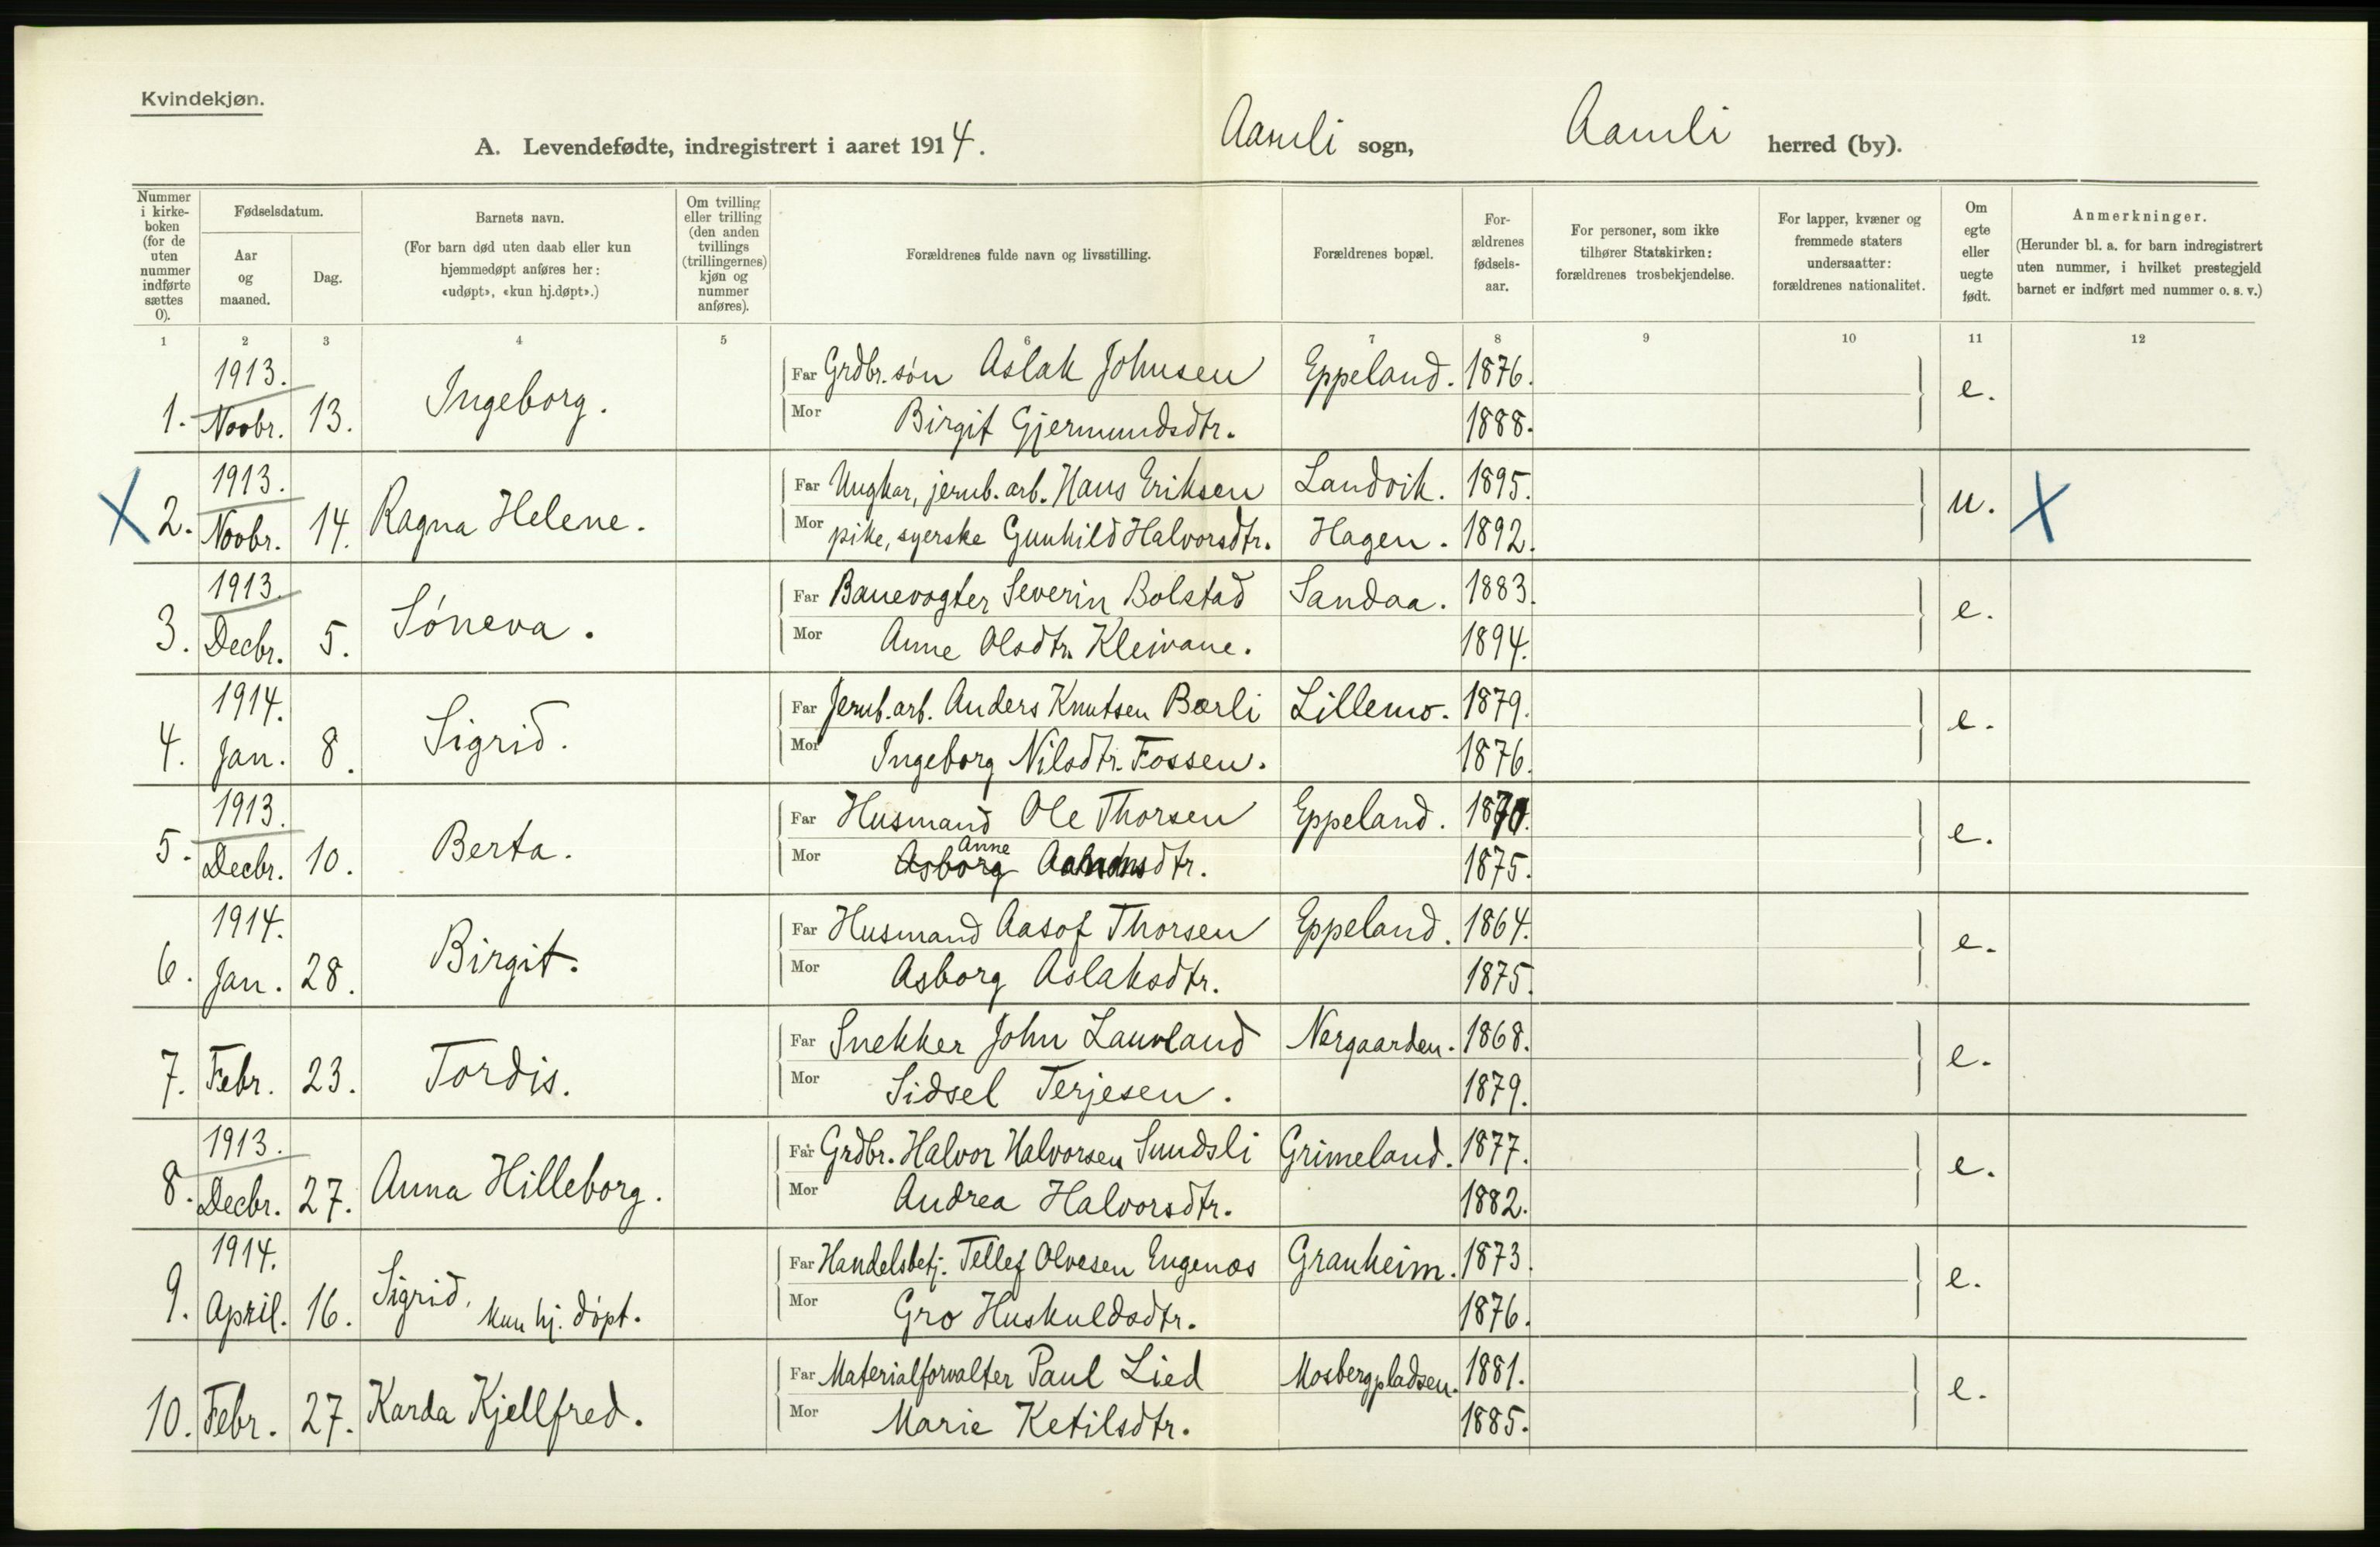 Kvindekjøn.
A. Levendefødte, indregistrert i aaret 1914. Aamli sogn, Aamli herred (by).
Nummer i kirkeboken (for de uten nummer indførte sættes 0).
Fødselsdatum.
Aar og maaned.
Dag.
Barnets navn.
(For barn død uten daab eller kun hjemmedøpt anføres her: «udøpt», «kun hj.døpt».)
Om tvilling eller trilling (den anden tvillings (trillingernes) kjøn og nummer anføres).
Forældrenes fulde navn og livsstilling.
Forældrenes bopæl.
Forældrenes fødselsaar.
For personer, som ikke tilhører Statskirken: forældrenes trosbekjendelse.
For lapper, kvæner og fremmede staters undersaatter: forældrenes nationalitet.
Om egte eller uegte født.
Anmerkninger.
(Herunder bl. a. for barn indregistrert uten nummer, i hvilket prestegjeld barnet er indført med nummer o. s. v.)
1 2 3 4 5 6 7 8 9 10 11 12
1. 1913. Novbr. 13. Ingeborg. Far Grdbr. søn Aslak Johnsen Eppeland. 1876. e.
Mor Birgit Gjermundsdtr. 1888.
X 2. 1913. Novbr. 14. Ragna Helene. Far Ungkar, jernb. arb. Hans Eriksen Landvik. 1895. u. X
Mor pike, syerske Gunhild Halvorsdtr. Hagen. 1892.
3. 1913. Decbr. 5. Søneva. Far Banevogter Severin Bolstad Sandaa. 1883. e.
Mor Anne Olsdtr. Kleivane. 1894.
4. 1914. Jan. 8. Sigrid. Far Jernb. arb. Anders Knutsen Bærli Lillemo. 1879. e.
Mor Ingeborg Nilsdtr. Fossen. 1876.
5. 1913. Decbr. 10. Berta. Far Husmand Ole Thorsen Eppeland. 1870. e.
Anne
Mor Asborg 1875.
6. 1914. Jan. 28. Birgit. Far Husmand Aasof Thorsen Eppeland. 1864. e.
Mor Asborg Aslaksdtr. 1875.
7. Febr. 23. Tordis. Far Snekker John Lauvland Nergaarden. 1868. e.
Mor Sidsel Terjesen. 1879.
8. 1913. Decbr. 27. Anna Hilleborg. Far Grdbr. Halvor Halvorsen Sundsli Grimeland. 1877. e.
Mor Andrea Halvorsdtr. 1882.
9. 1914. April. 16. Sigrid, kun hj. døpt. Far Handelsbetj. Tellef Olvesen Engenæs Granheim. 1873. e.
Mor Gro Huskuldsdtr. 1876.
10. Febr. 27. Karda Kjellfred. Far Materialforvalter Paul Lied Mosbergpladsen. 1881. e.
Mor Marie Ketilsdtr. 1885.